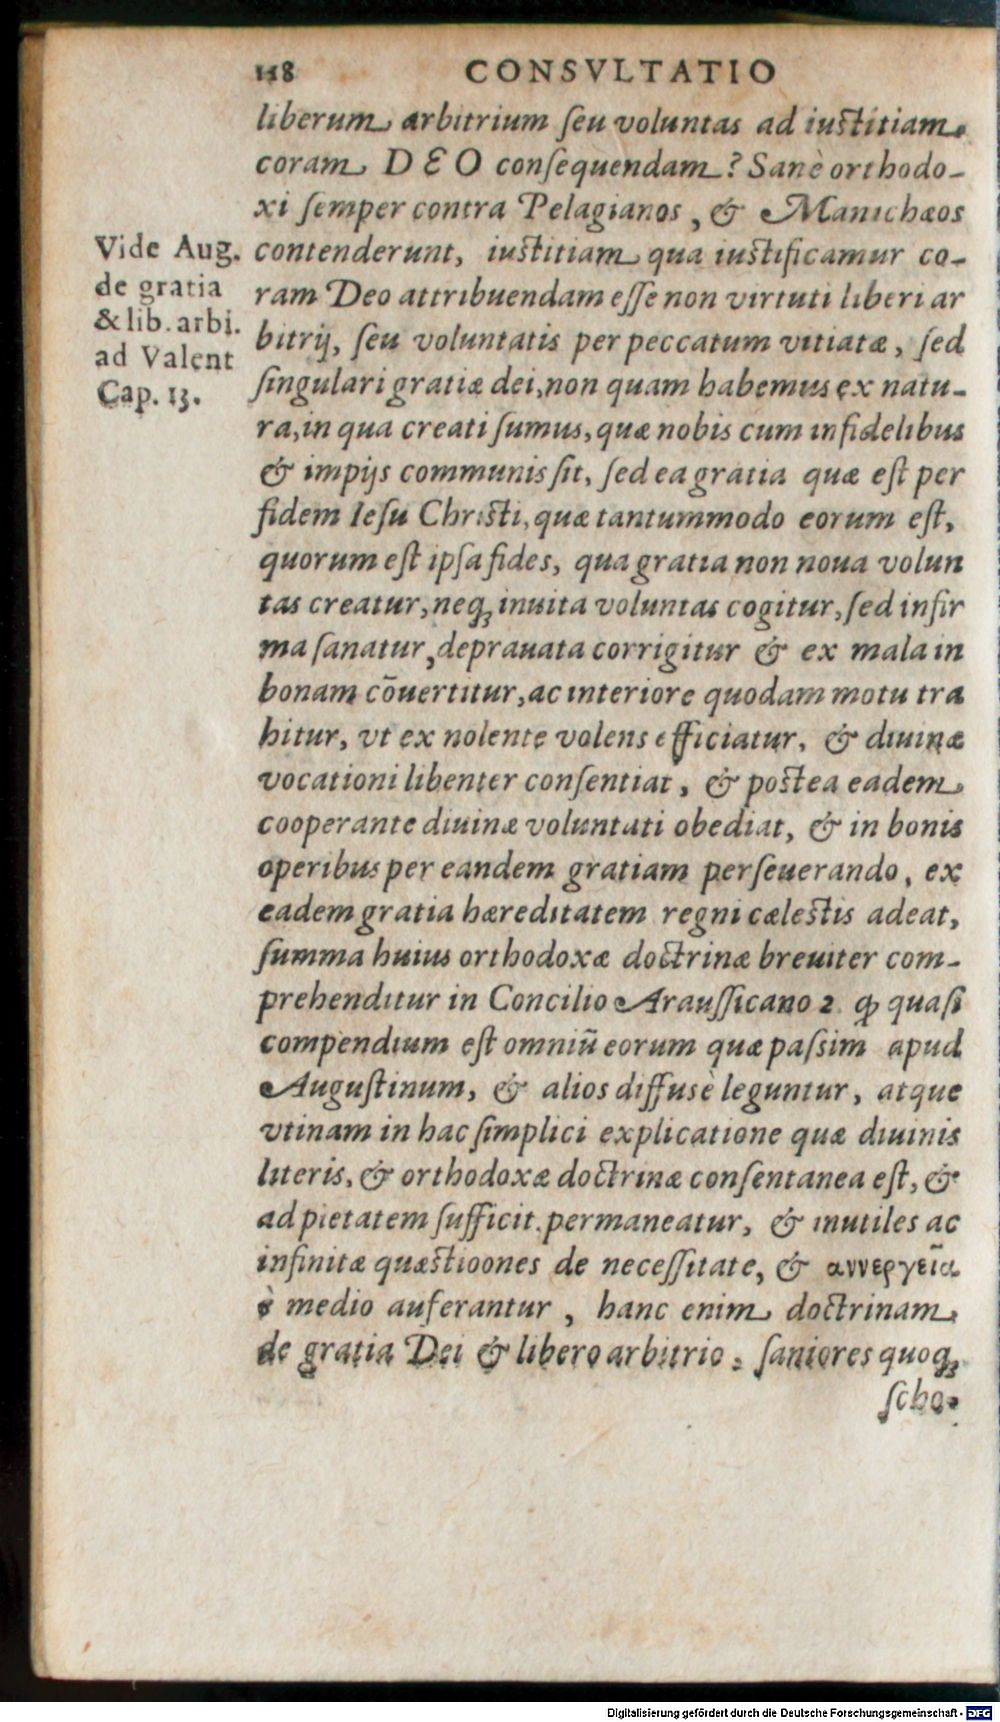 118 CONSVLTATIO
liberum arbitrium ſeu voluntas ad iuſtitiam
coram DEO conſequendam? Sanè orthodo-
xi ſemper contra Pelagianos, & Manichæos
contenderunt, iuſtitiam qua iuſtificamur co-
ram Deo attribuendam eſſe non virtuti liberi ar
bitrij, ſeu voluntatis per peccatum vitiatæ, ſed
ſingulari gratiæ dei, non quam habemus ex natu-
ra, in qua creati ſumus, quæ nobis cum infidelibus
& impijs communis ſit, ſed ea gratia quæ eſt per
fidem Ieſu Chriſti, quæ tantummodo eorum eſt,
quorum eſt ipſa fides, qua gratia non noua volun
tas creatur, neq; inuita voluntas cogitur, ſed infir
ma ſanatur, deprauata corrigitur & ex mala in
bonam cōuertitur, ac interiore quodam motu tra
hitur, vt ex nolente volens efficiatur, & diuinæ
vocationi libenter conſentiat, & poſtea eadem
cooperante diuinæ voluntati obediat, & in bonis
operibus per eandem gratiam perſeuerando, ex
eadem gratia hæreditatem regni cæleſtis adeat,
ſumma huius orthodoxæ doctrinæ breuiter com-
prehenditur in Concilio Arauſſicano 2. ꝙ quaſi
compendium eſt omniū eorum quæ paſsim apud
Auguſtinum, & alios diffusè leguntur, atque
vtinam in hac ſimplici explicatione quæ diuinis
literis, & orthodoxæ doctrinæ conſentanea eſt, &
ad pietatem ſufficit, permaneatur, & inutiles ac
infinitæ quæſtioones de neceſſitate, & αννεργεῖα
è medio auferantur, hanc enim doctrinam
de gratia Dei & libero arbitrio, ſaniores quoq;
ſcho-
Vide Aug.
de gratia
& lib. arbi.
ad Valent
Cap. 13.
Digitalisierung gefördert durch die Deutsche Forschungsgemeinschaft - DFG